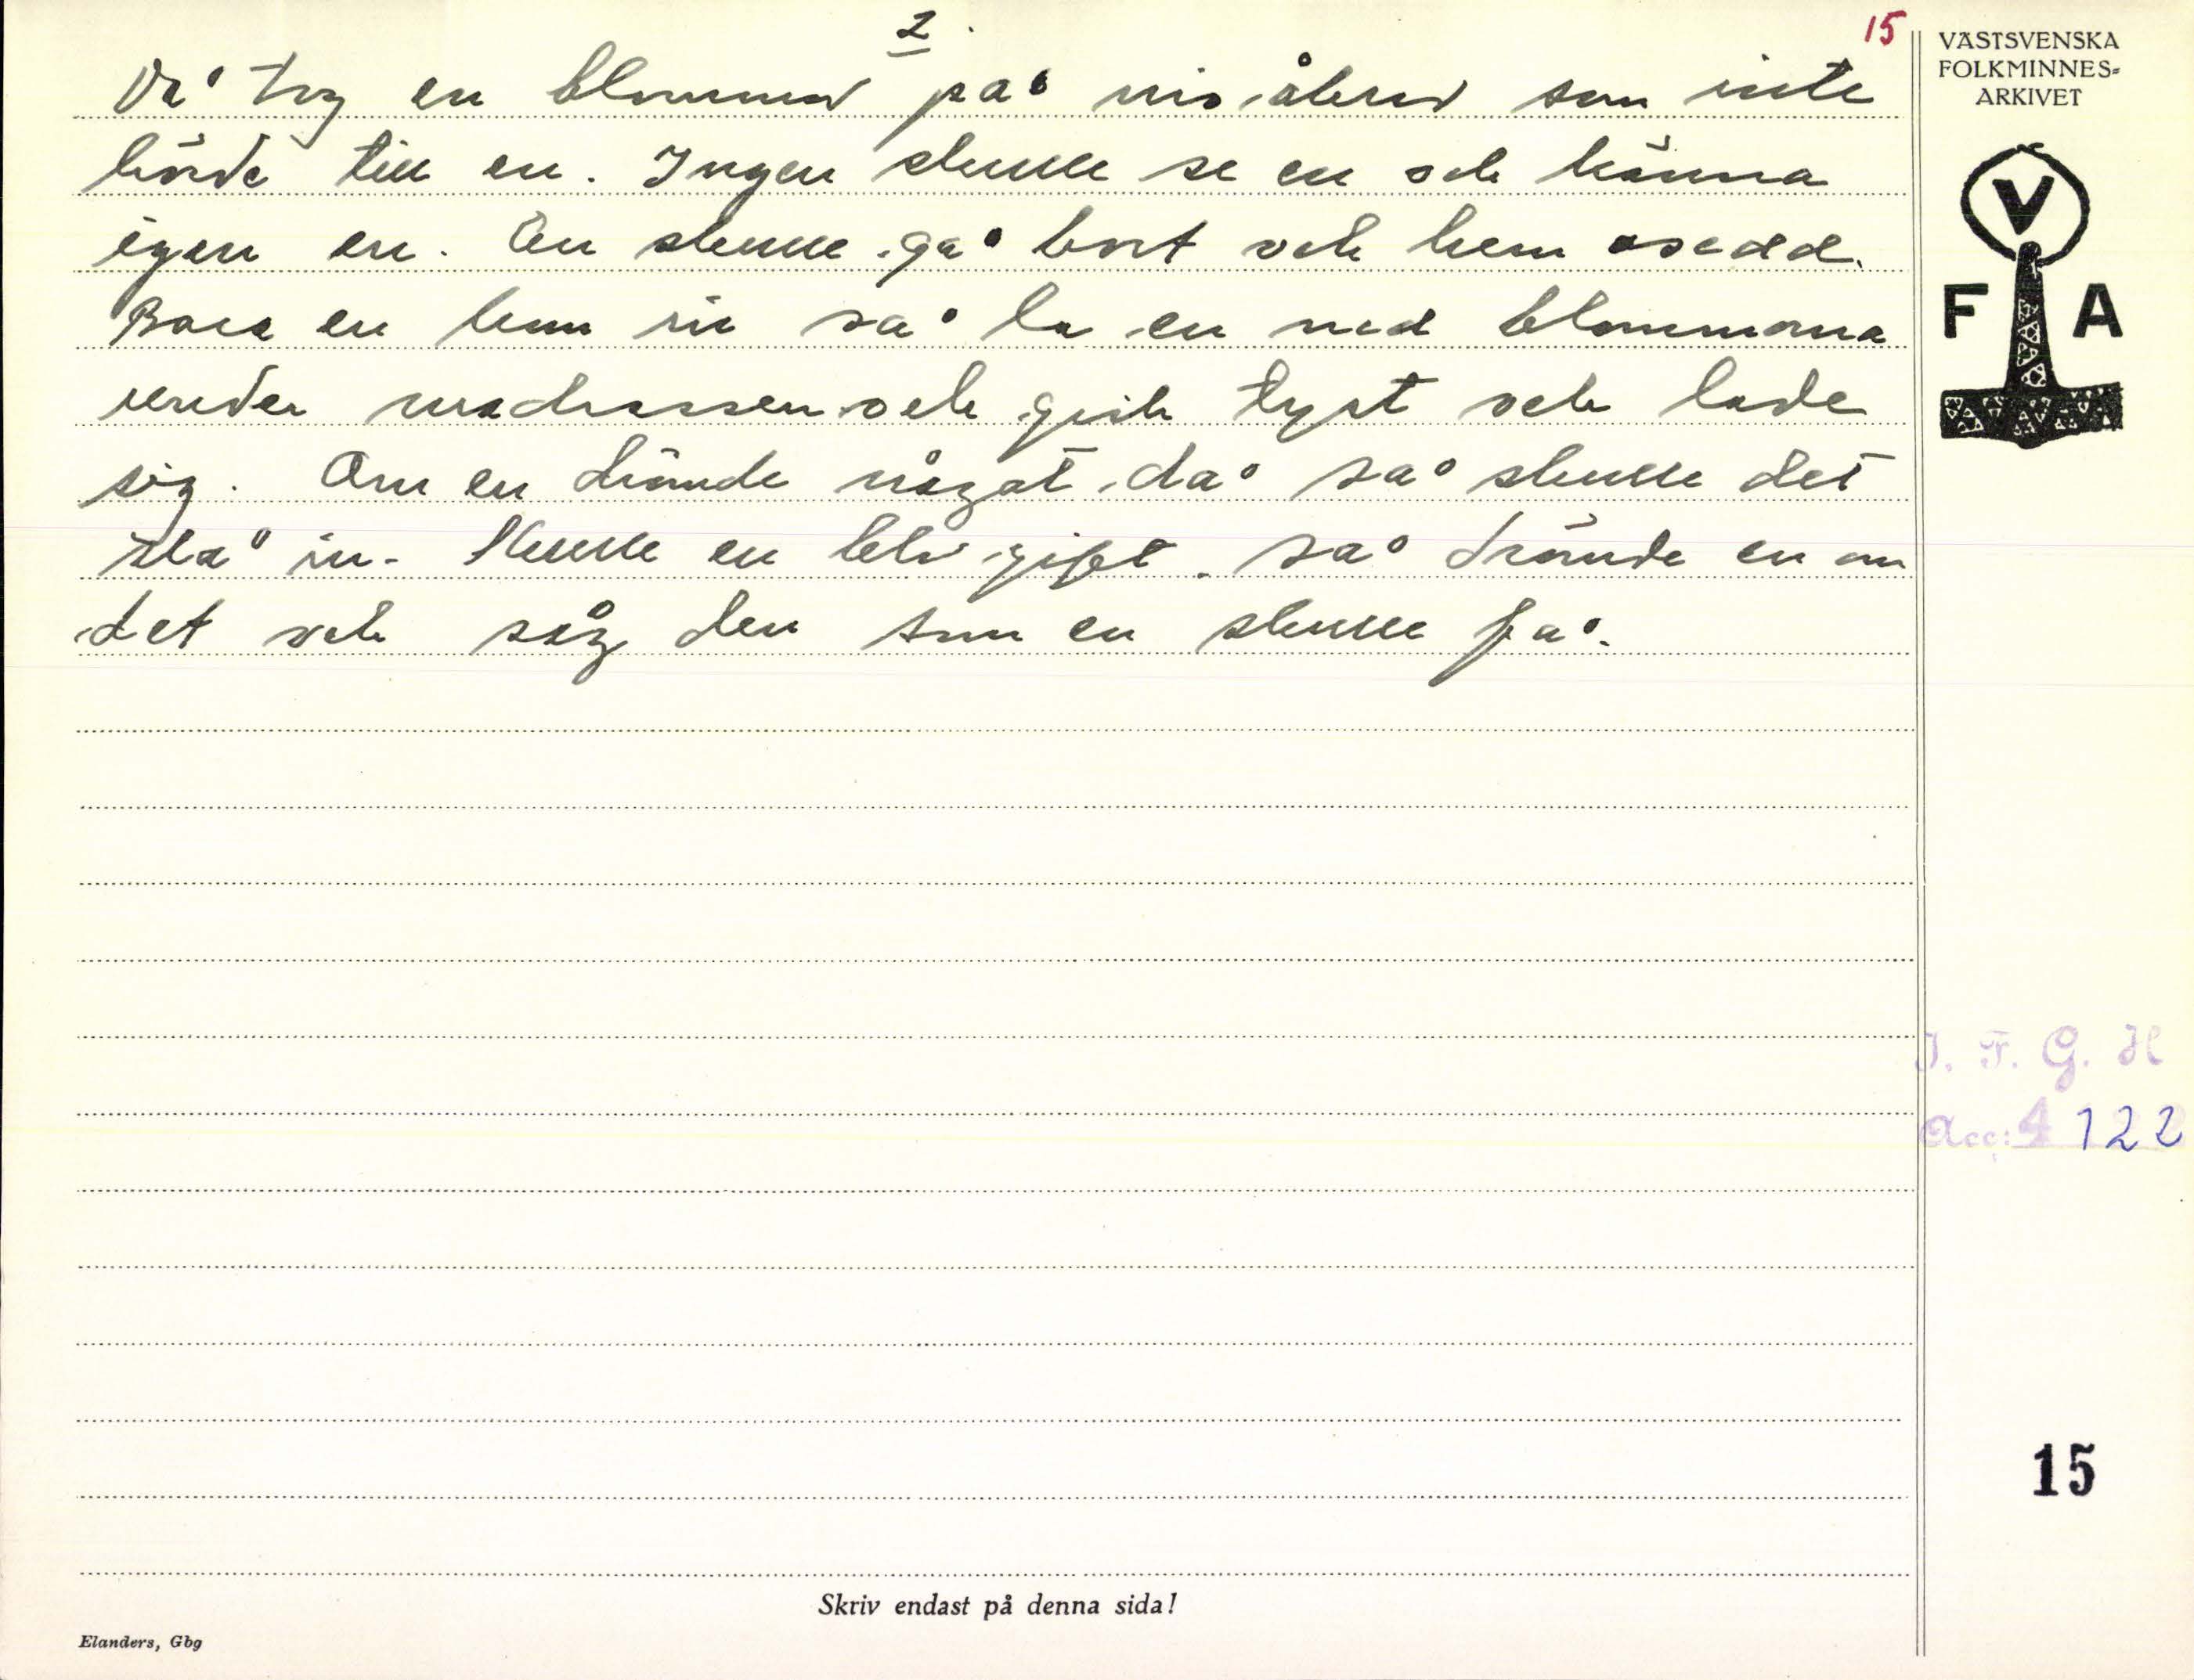 2.
15
Då tog en blommor på nio åkrar som inte
hörde till en. Ingen skulle se en och känna
igen en. En skulle gå bort och hem osedd.
Bara en kom in så la en ned blommorna
under madrassen och gick tyst och lade
sig. Om en drömde något då så skulle det
slå in. Skulle en bliv gift så drömde en om
det och såg den som en skulle få.
VÄSTSVENSKA
FOLKMINNES-
ARKIVET
V
F A
I. F. G. H
Acc: 4122
15
Skriv endast på denna sida!
Elanders, Gbg